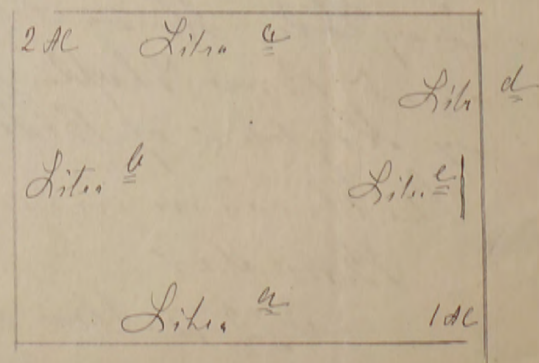 2 AC Litra a
Litr d
Litra b
Litr e
Litra a
1 AC